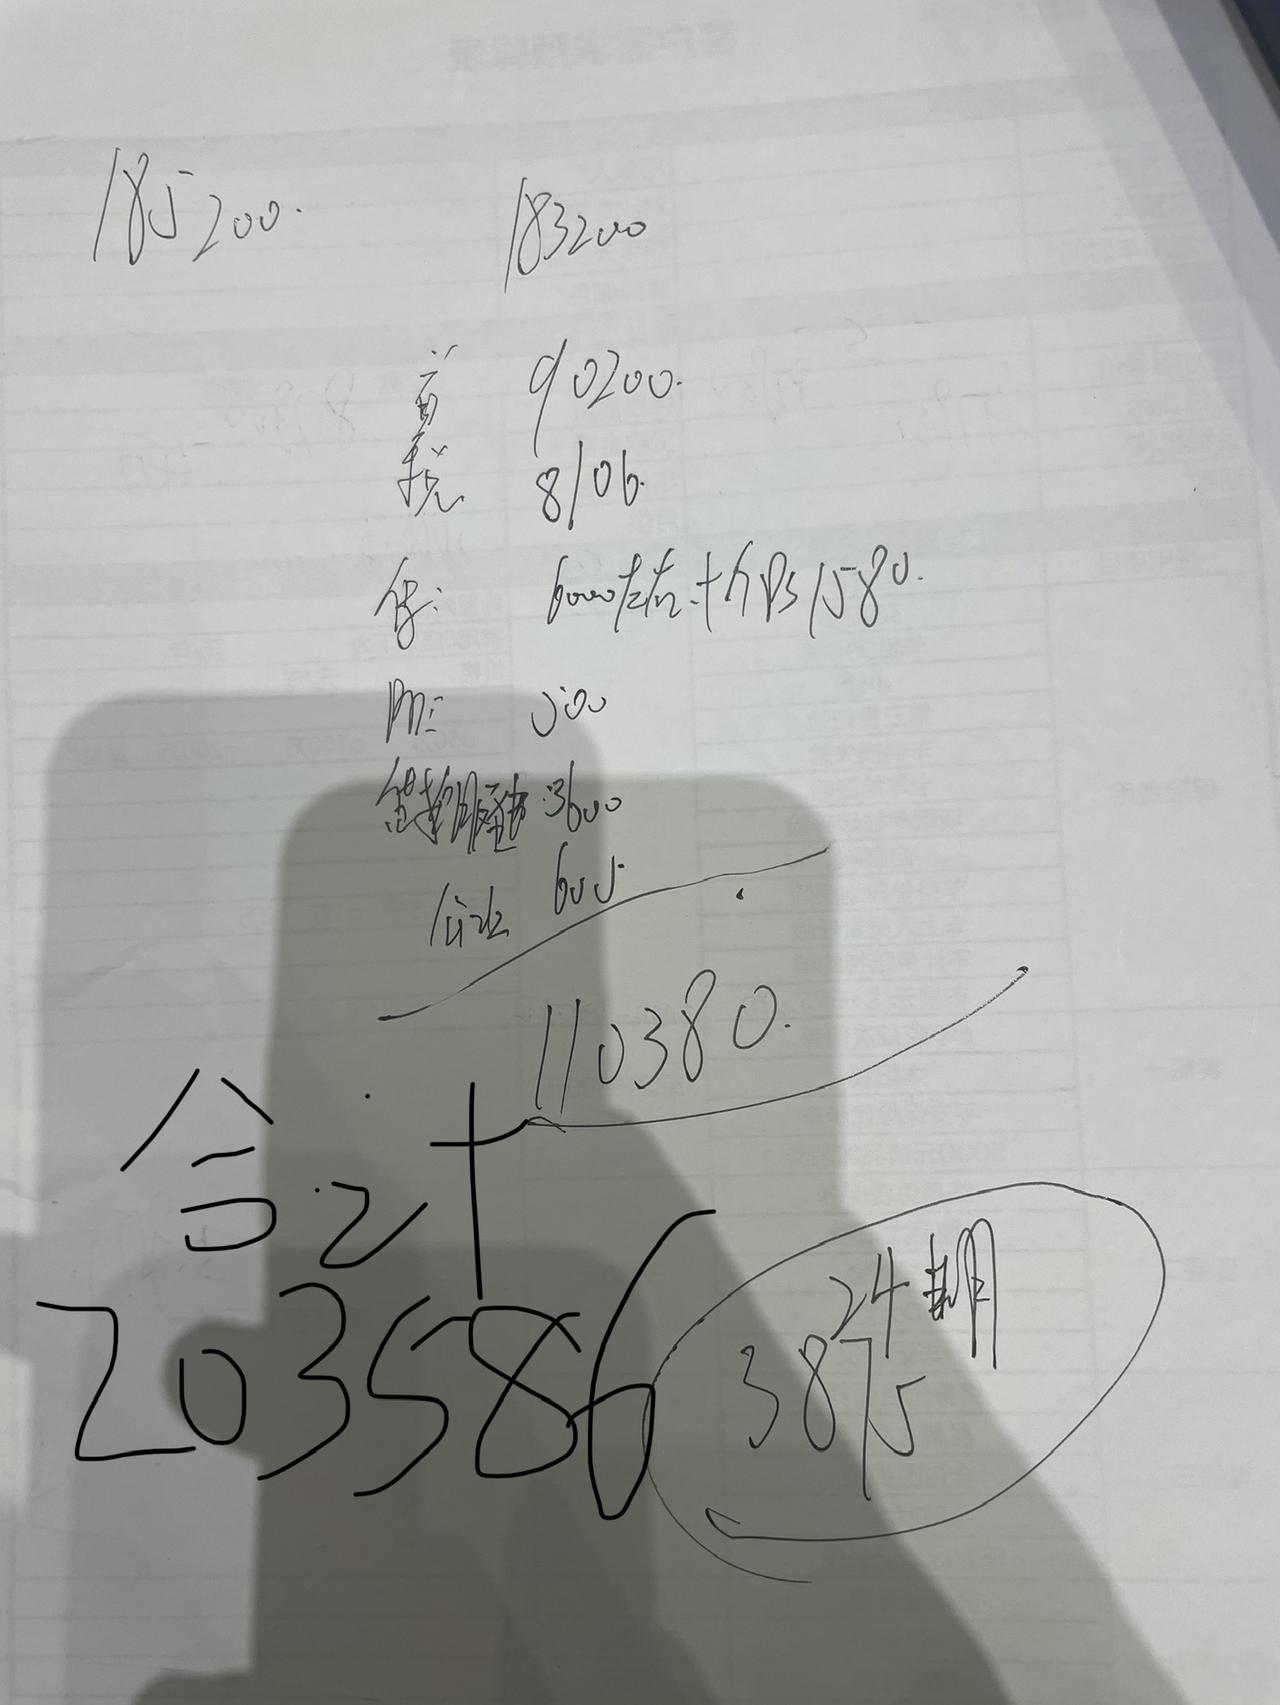 185200. 183200
首 90200.
税 8106.
保: 6000左右.+GPS1580.
牌: 500
金融 3600
公证 600
110380.
合计
203586
24期
3875